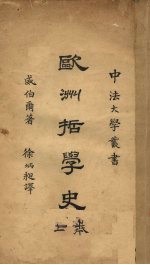 中法大學叢書
歐洲哲學史
威伯爾著
徐炳昶譯